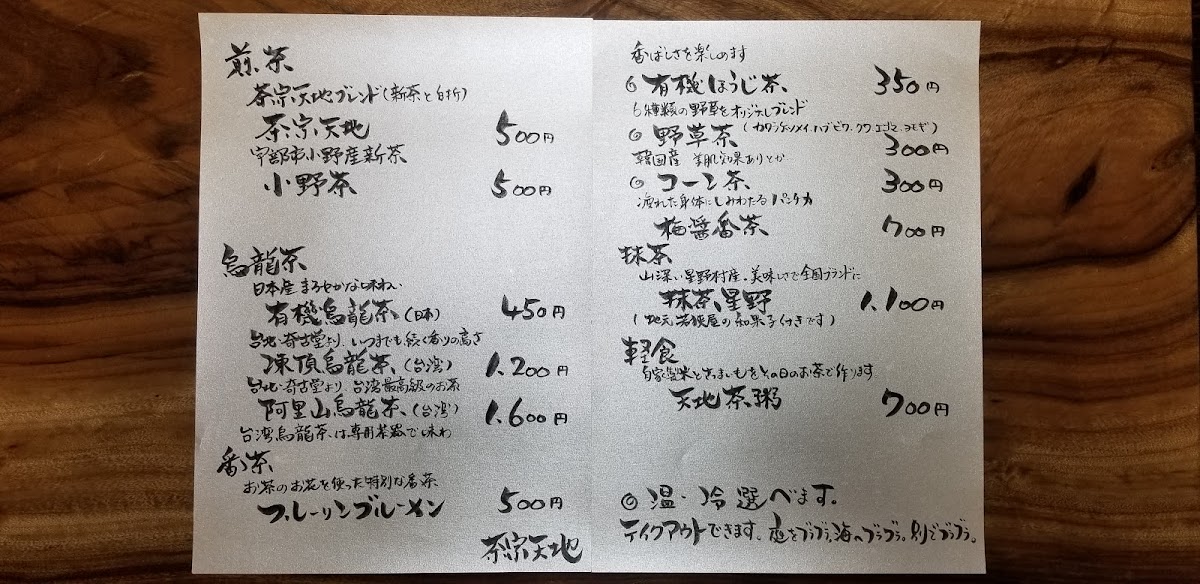 煎茶
茶宗天地ブレンド(新茶と白折)
茶宗天地 500円
宇部市小野産新茶
小野茶 500円
烏龍茶
日本産 まろやかな味わい
有機烏龍茶(日本) 450円
台北・奇古堂より、いつまでも続く香りの高さ
凍頂烏龍茶、(台湾) 1.200円
台北・奇古堂より、台湾最高級のお茶
阿里山烏龍茶、(台湾) 1.600円
台湾烏龍茶、は専用茶器で味わ
番茶
お茶のお花を使った特別な番茶
フレーリンブルーメン 500円
茶宗天地
香ばしさを楽しめます
◎有機ほうじ茶、 350円
6種類の野草をオリジナルブレンド
◎野草茶 (カワラケツメイ、ハブ、ビワ、クワ、エゴマ、ヨモギ) 300円
韓国産 美肌効果ありとか
◎コーン茶 300円
疲れた身体にしみわたるパンチ力
梅醤番茶 700円
抹茶
山深い星野村産・美味しさで全国ブランドに
抹茶、星野 1.100円
(地元若狭屋の和菓子付きです)
軽食
自家製米とさつまいもをその日のお茶で作ります
天地茶粥 700円
◎温・冷選べます。
テイクアウトできます。庭をブラブラ、海へブラブラ。別でブラブラ。